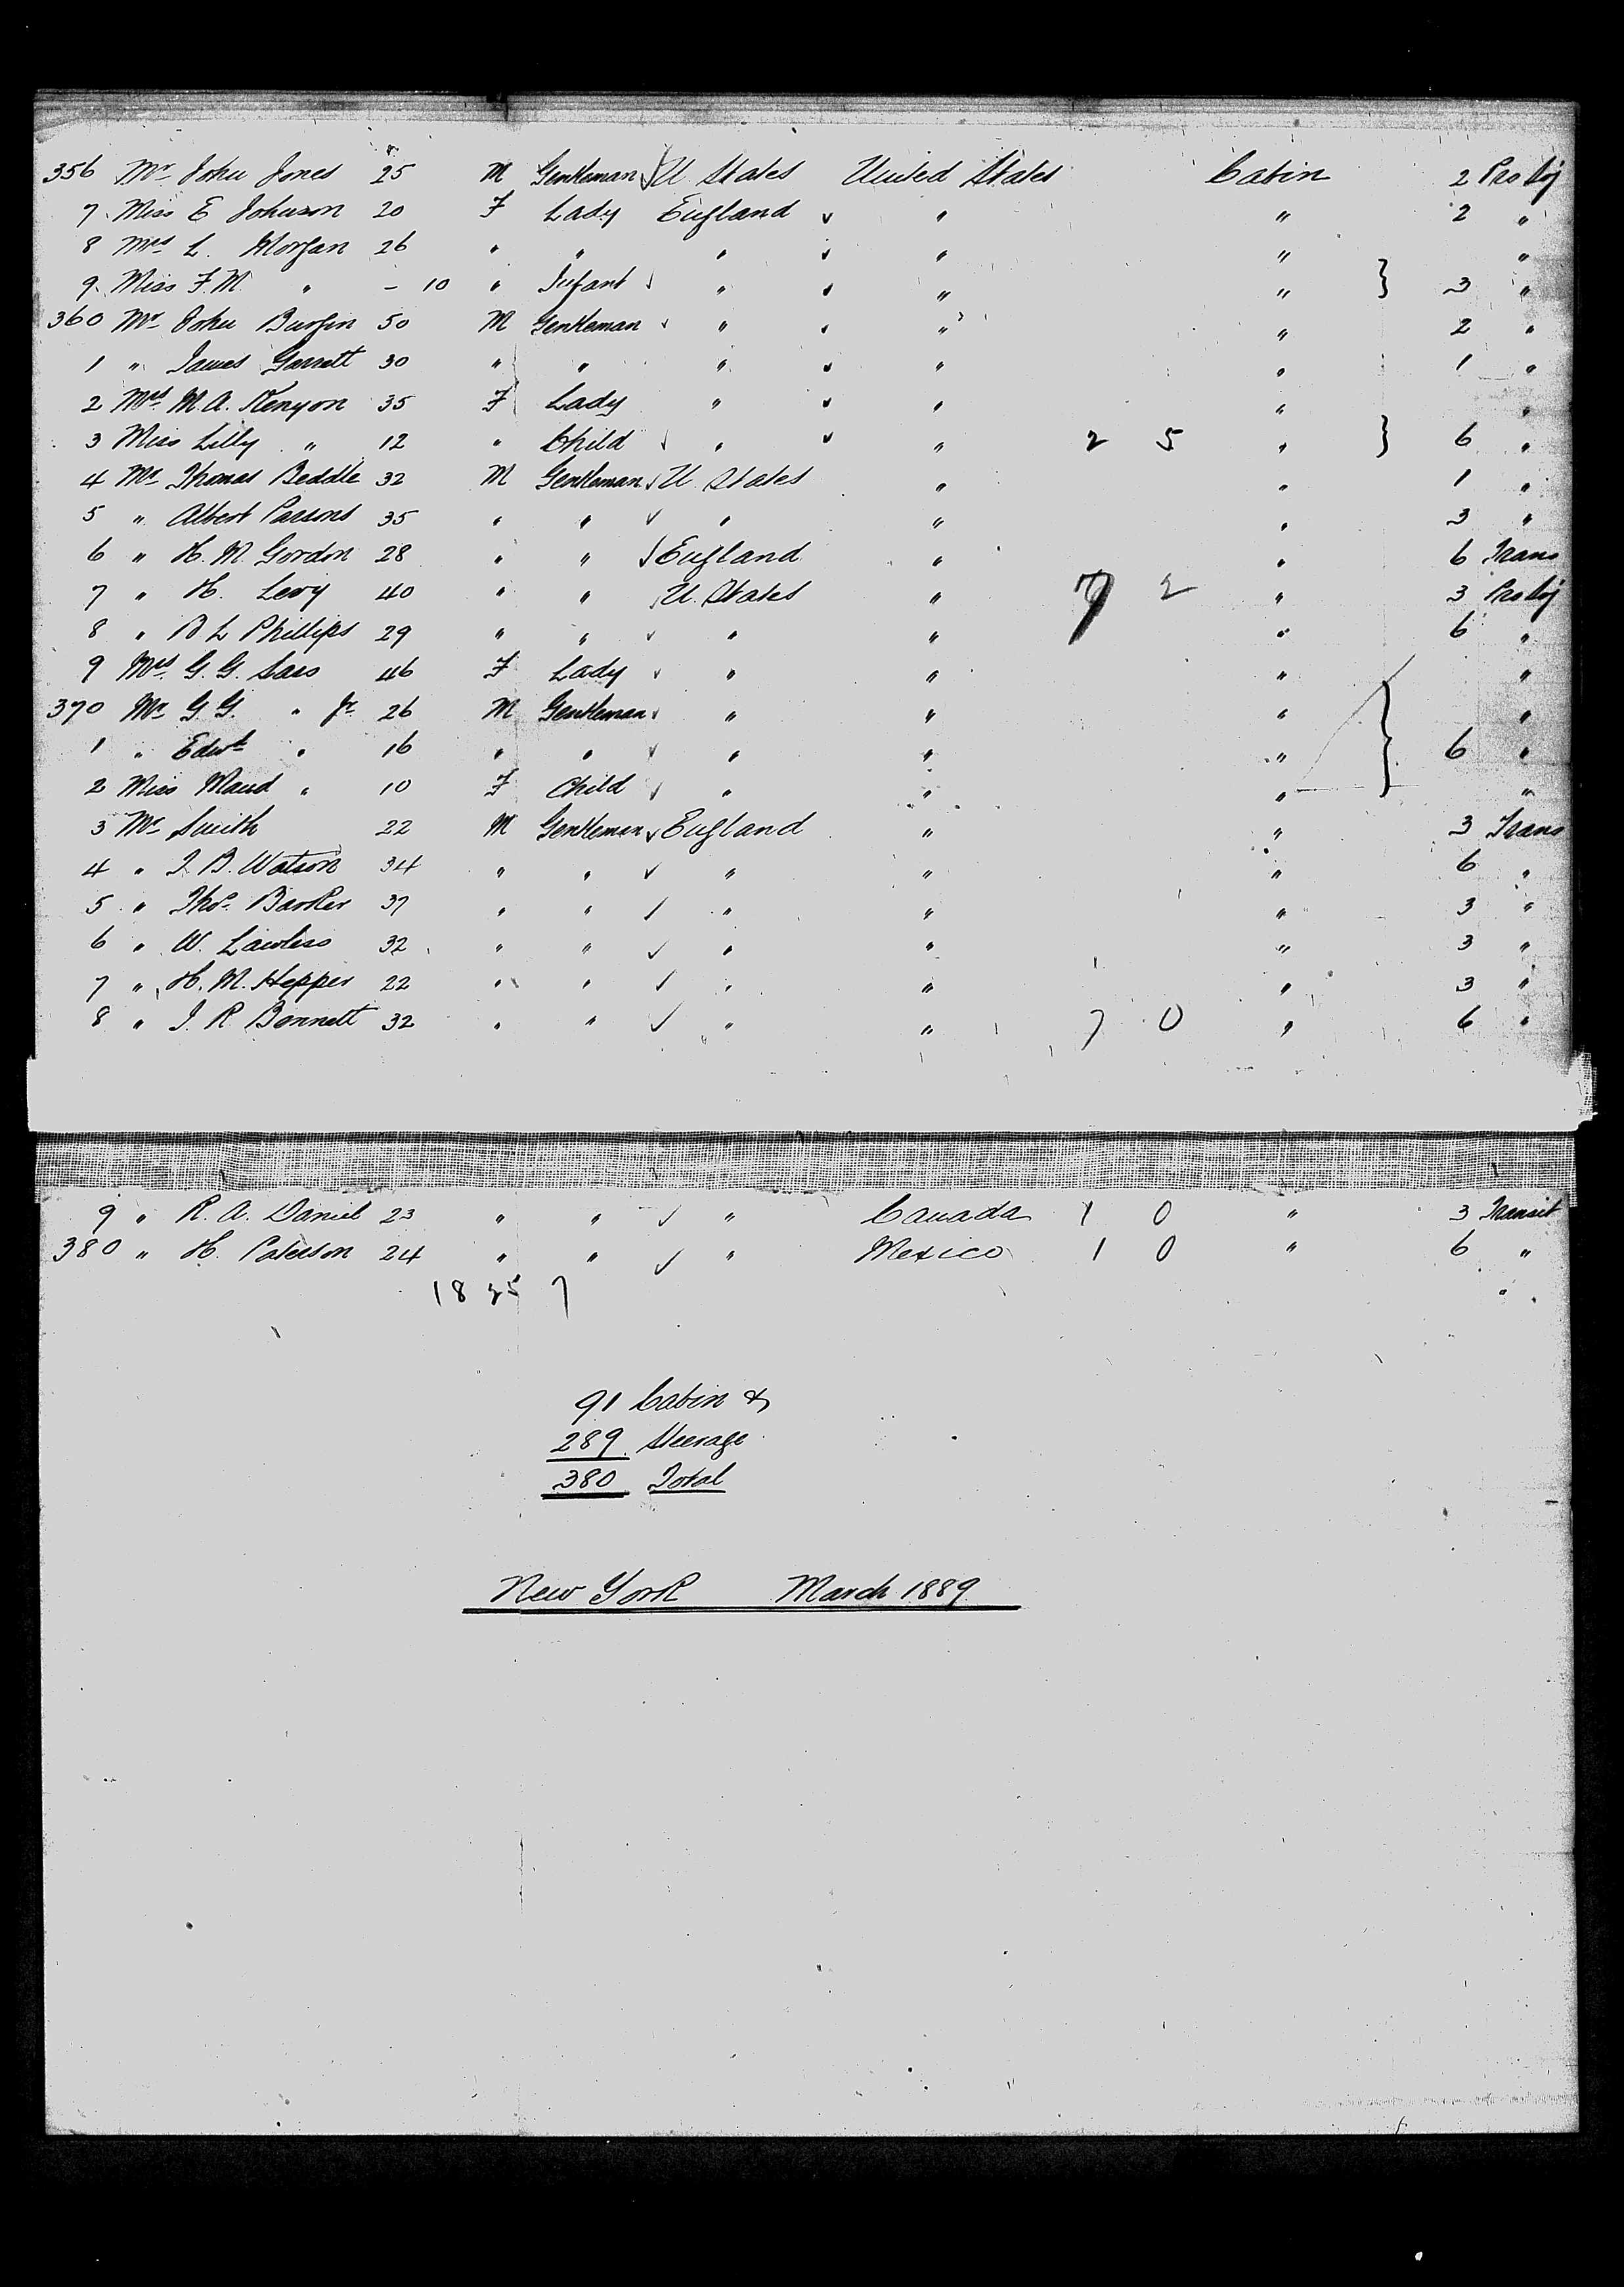 356 Mr John Jones 25 M Gentleman U. States United States Cabin 2 Pro Soj
7 Miss E Johnson 20 F Lady England " " 2 "
8 Mrs L. Morgan 26 " " " " " "
9 Miss F. M. " - 10 " Infant " " " } 3 "
360 Mr John Burgin 50 M Gentleman " " " 2 "
1 " James Garrett 30 " " " " " 1 "
2 Mrs M. A. Kenyon 35 F Lady " " " "
3 Miss Lilly " 12 " Child " " 2 5 " } 6 "
4 Mr Thomas Beddle 32 M Gentleman U. States " " 1 "
5 " Albert Parsons 35 " " " " " 3 "
6 " H. M. Gordon 28 " " England " " 6 Trans
7 " H. Levy 40 " " U. States " 7 2 " 3 Pro Soj
8 " B L Phillips 29 " " " " " 6 "
9 Mrs G. G. Sass 46 F Lady " " " "
370 Mr G. G. " Jr 26 M Gentleman " " " "
1 " Edwd " 16 " " " " " 6 "
2 Miss Maud " 10 F Child " " " "
3 Mr Smith 22 M Gentleman England " " 3 Trans
4 " J. B. Watson 34 " " " " " 6 "
5 " Thos Barker 37 " " " " " 3 "
6 " W. Lawless 32 " " " " " 3 "
7 " H. M. Hepper 22 " " " " " 3 "
8 " J. R. Bennett 32 " " " " 7 0 " 6 "
9 " R. A. Daniel 23 " " " Canada 1 0 " 3 Transit
380 " H. Paterson 24 " " " Mexico 1 0 " 6 "
18 25 7
91 Cabin &
289 Steerage
380 Total
New York March 1889